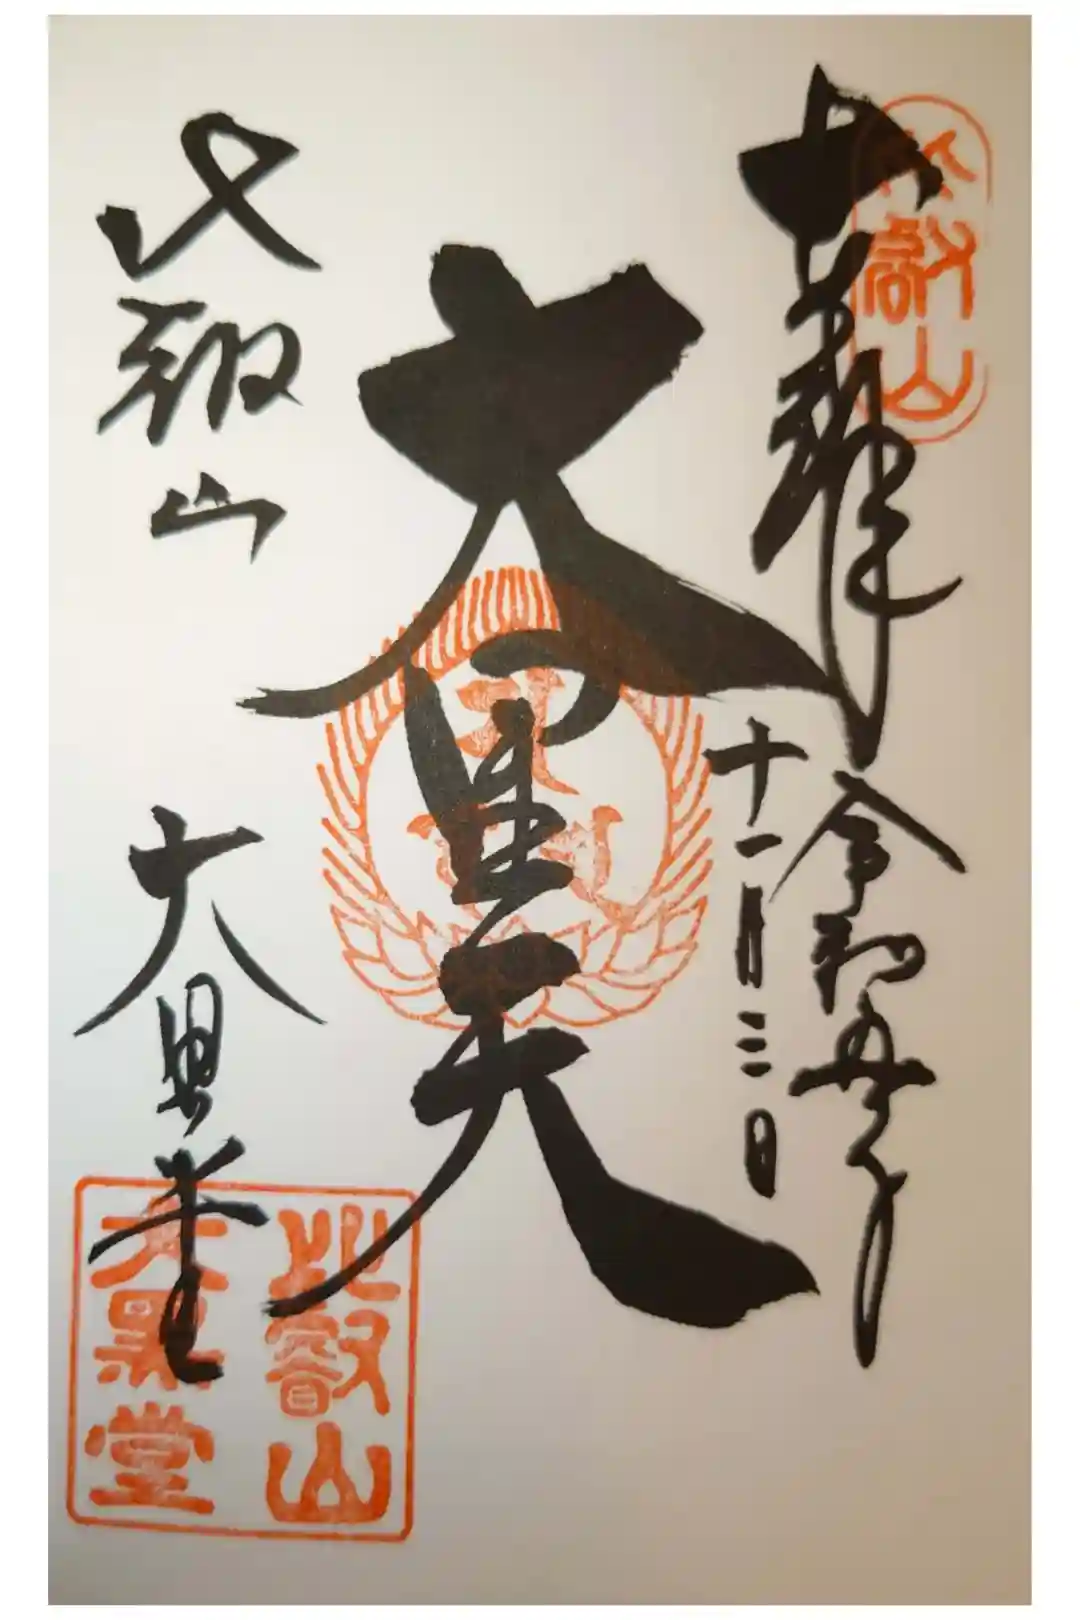 奉拝
令和五年
十一月三日
大黒天
比叡山
大黒堂
比叡山
大黒堂